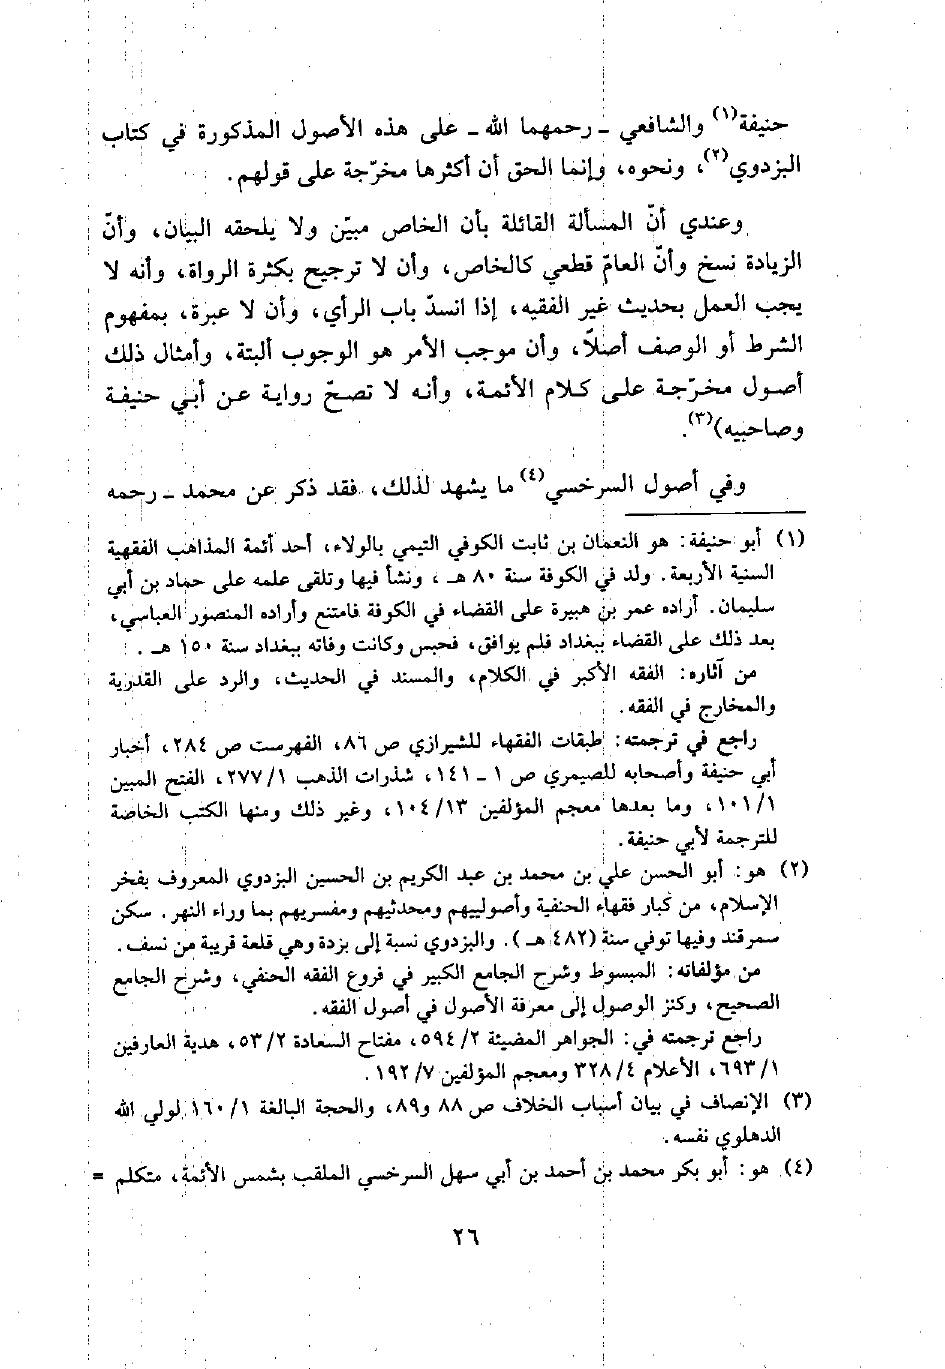 حنيفة(١) والشافعي ـ رحمهما الله ـ على هذه الأصول المذكورة في كتاب
البزدوي(٢)، ونحوه، وإنما الحق أن أكثرها مخرّجة على قولهم.
وعندي أنّ المسألة القائلة بأن الخاص مبيّن ولا يلحقه البيان، وأنّ
الزيادة نسخ وأنّ العامّ قطعي كالخاص، وأن لا ترجيح بكثرة الرواة، وأنه لا
يجب العمل بحديث غير الفقيه، إذا انسدّ باب الرأي، وأن لا عبرة، بمفهوم
الشرط أو الوصف أصلاً، وأن موجب الأمر هو الوجوب ألبتة، وأمثال ذلك
أصول مخرّجة على كلام الأئمة، وأنه لا تصحّ رواية عن أبي حنيفة
وصاحبيه)(٣).
وفي أصول السرخسي(٤) ما يشهد لذلك، فقد ذكر عن محمد ـ رحمه
(١) أبو حنيفة: هو النعمان بن ثابت الكوفي التيمي بالولاء، أحد أئمة المذاهب الفقهية
السنية الأربعة. ولد في الكوفة سنة ٨٠ هـ، ونشأ فيها وتلقى علمه على حماد بن أبي
سليمان. أراده عمر بن هبيرة على القضاء في الكوفة فامتنع وأراده المنصور العباسي،
بعد ذلك على القضاء ببغداد فلم يوافق، فحبس وكانت وفاته ببغداد سنة ١٥٠ هـ.
من آثاره: الفقه الأكبر في الكلام، والمسند في الحديث، والرد على القدرية
والمخارج في الفقه.
راجع في ترجمته: طبقات الفقهاء للشيرازي ص ٨٦، الفهرست ص ٢٨٤، أخبار
أبي حنيفة وأصحابه للصيمري ص ١ ـ ١٤١، شذرات الذهب ٢٧٧/١، الفتح المبين
١٠١/١، وما بعدها معجم المؤلفين ١٠٤/١٣، وغير ذلك ومنها الكتب الخاصة
للترجمة لأبي حنيفة.
(٢) هو: أبو الحسن علي بن محمد بن عبد الكريم بن الحسين البزدوي المعروف بفخر
الإسلام، من كبار فقهاء الحنفية وأصوليهم ومحدثيهم ومفسريهم بما وراء النهر. سكن
سمرقند وفيها توفي سنة (٤٨٢ هـ). والبزدوي نسبة إلى بزدة وهي قلعة قريبة من نسف.
من مؤلفاته: المبسوط وشرح الجامع الكبير في فروع الفقه الحنفي، وشرح الجامع
الصحيح، وكنز الوصول إلى معرفة الأصول في أصول الفقه.
راجع ترجمته في: الجواهر المضيئة ٥٩٤/٢، مفتاح السعادة ٥٣/٢، هدية العارفين
٦٩٣/١، الأعلام ٣٢٨/٤ ومعجم المؤلفين ١٩٢/٧.
(٣) الإنصاف في بيان أسباب الخلاف ص ٨٨ و٨٩، والحجة البالغة ١٦٠/١ لولي الله
الدهلوي نفسه.
(٤) هو: أبو بكر محمد بن أحمد بن أبي سهل السرخسي الملقب بشمس الأئمة، متكلم =
٢٦